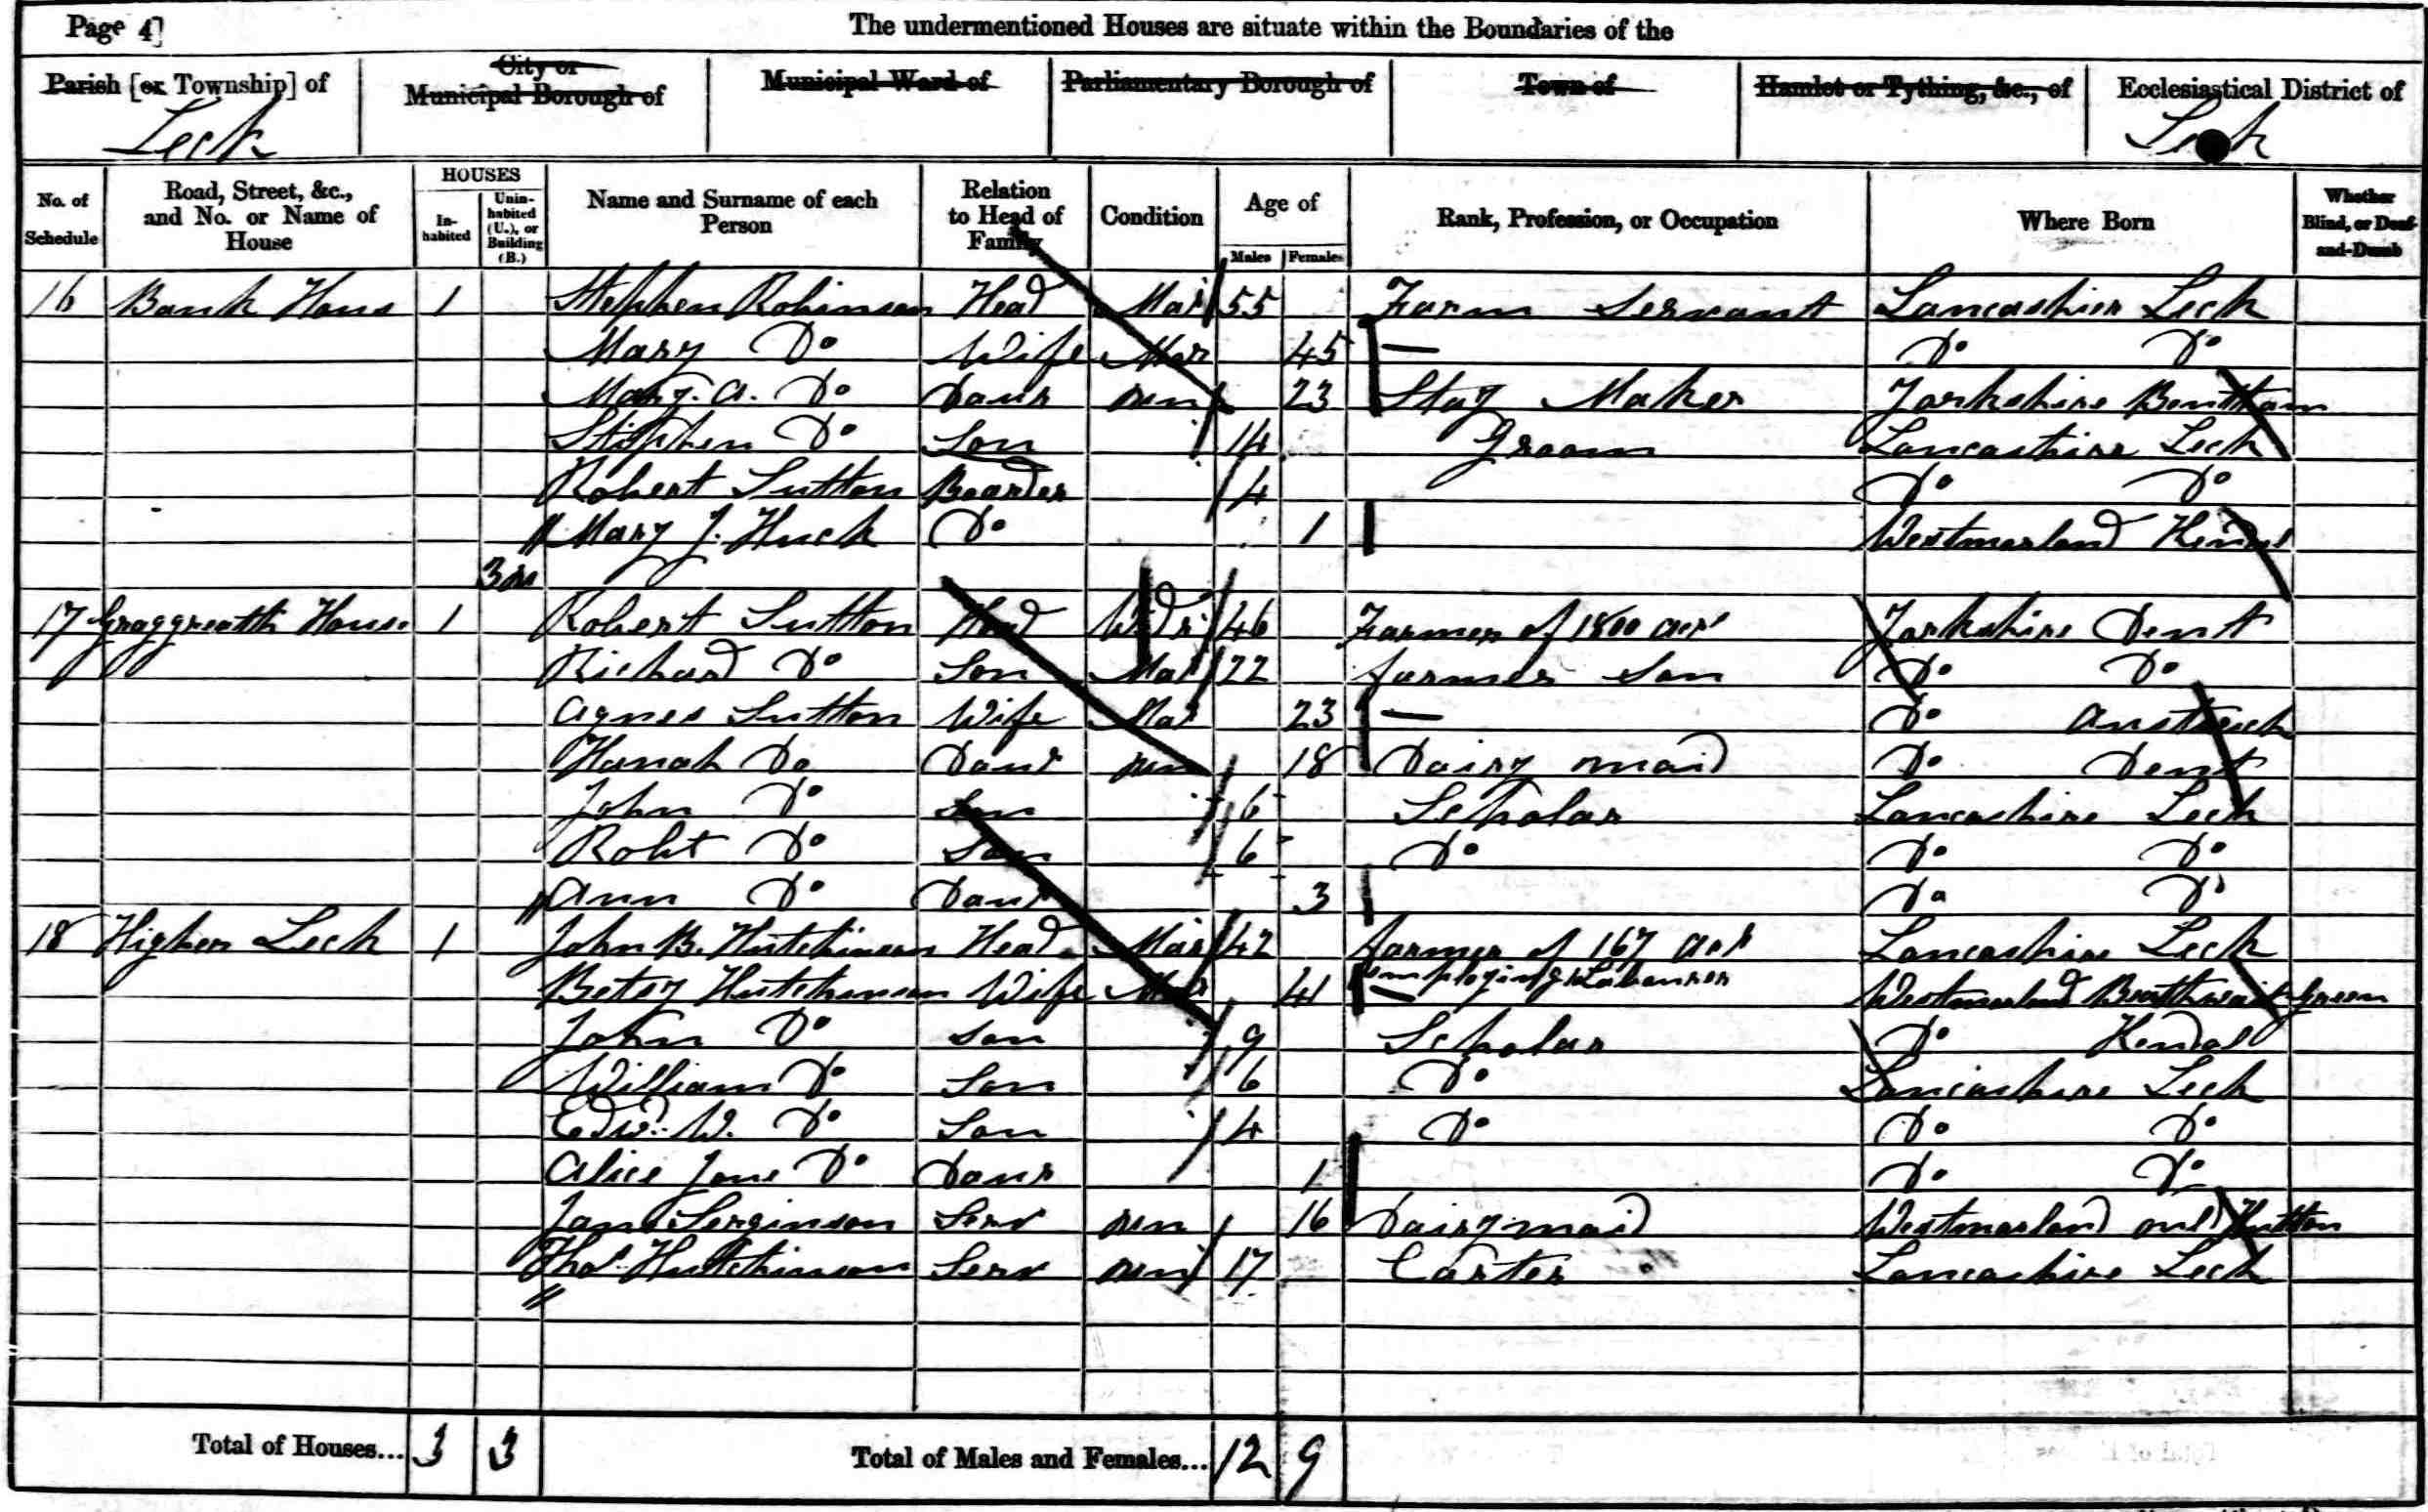 Page 4]
The undermentioned Houses are situate within the Boundaries of the
Parish [or Township] of
City or Municipal Borough of
Municipal Ward of
Parliamentary Borough of
Town of
Hamlet or Tything, &c., of
Ecclesiastical District of
Leck
Leck
No. of Schedule
Road, Street, &c., and No. or Name of House
HOUSES
In-habited
Unin-habited (U.), or Building (B.)
Name and Surname of each Person
Relation to Head of Family
Condition
Age of
Males
Females
Rank, Profession, or Occupation
Where Born
Whether Blind, or Deaf-and-Dumb
16 Bank Hous 1 Stephen Robinson Head Mar 55 Farm Servant Lancashier Leck
Mary Do Wife Mar 45 — Do Do
Mary. A. Do Daur un 23 Stay Maker Yorkshire Bentham
Stephen Do Son 14 Groom Lancashire Leck
Robert Sutton Boarder 4 Do Do
Mary J. Huck Do 1 Westmorland Kendal
3
17 Graggreatth House 1 Robert Sutton Head Widr 46 Farmer of 1800 acre Yorkshire Dent
Richard Do Son Mar 22 farmer Son Do Do
Agnes Sutton Wife Mar 23 — Do Austwick
Hanah Do Daur un 18 Dairy maid Do Dent
John Do Son 6 Scholar Lancashire Leck
Robt Do Son 6 Do Do Do
Ann Do Daur 3 Do Do
18 Higher Leck 1 John B. Hutchinson Head Mar 42 farmer of 167 acr Lancashire Leck
employing Labourer
Betsy Hutchinson Wife Mar 41 — Westmorland Brathwait Green
John Do Son 9 Scholar Do Kendal
William Do Son 6 Do Lancashire Leck
Edwd. W. Do Son 4 Do Do Do
Alice Jane Do Daur 1 Do Do
Jane Serginson Serv un 16 Dairymaid Westmorland ould Hutton
Thos Hutchinson Serv un 17 Carter Lancashire Leck
Total of Houses... 3 3 Total of Males and Females... 12 9